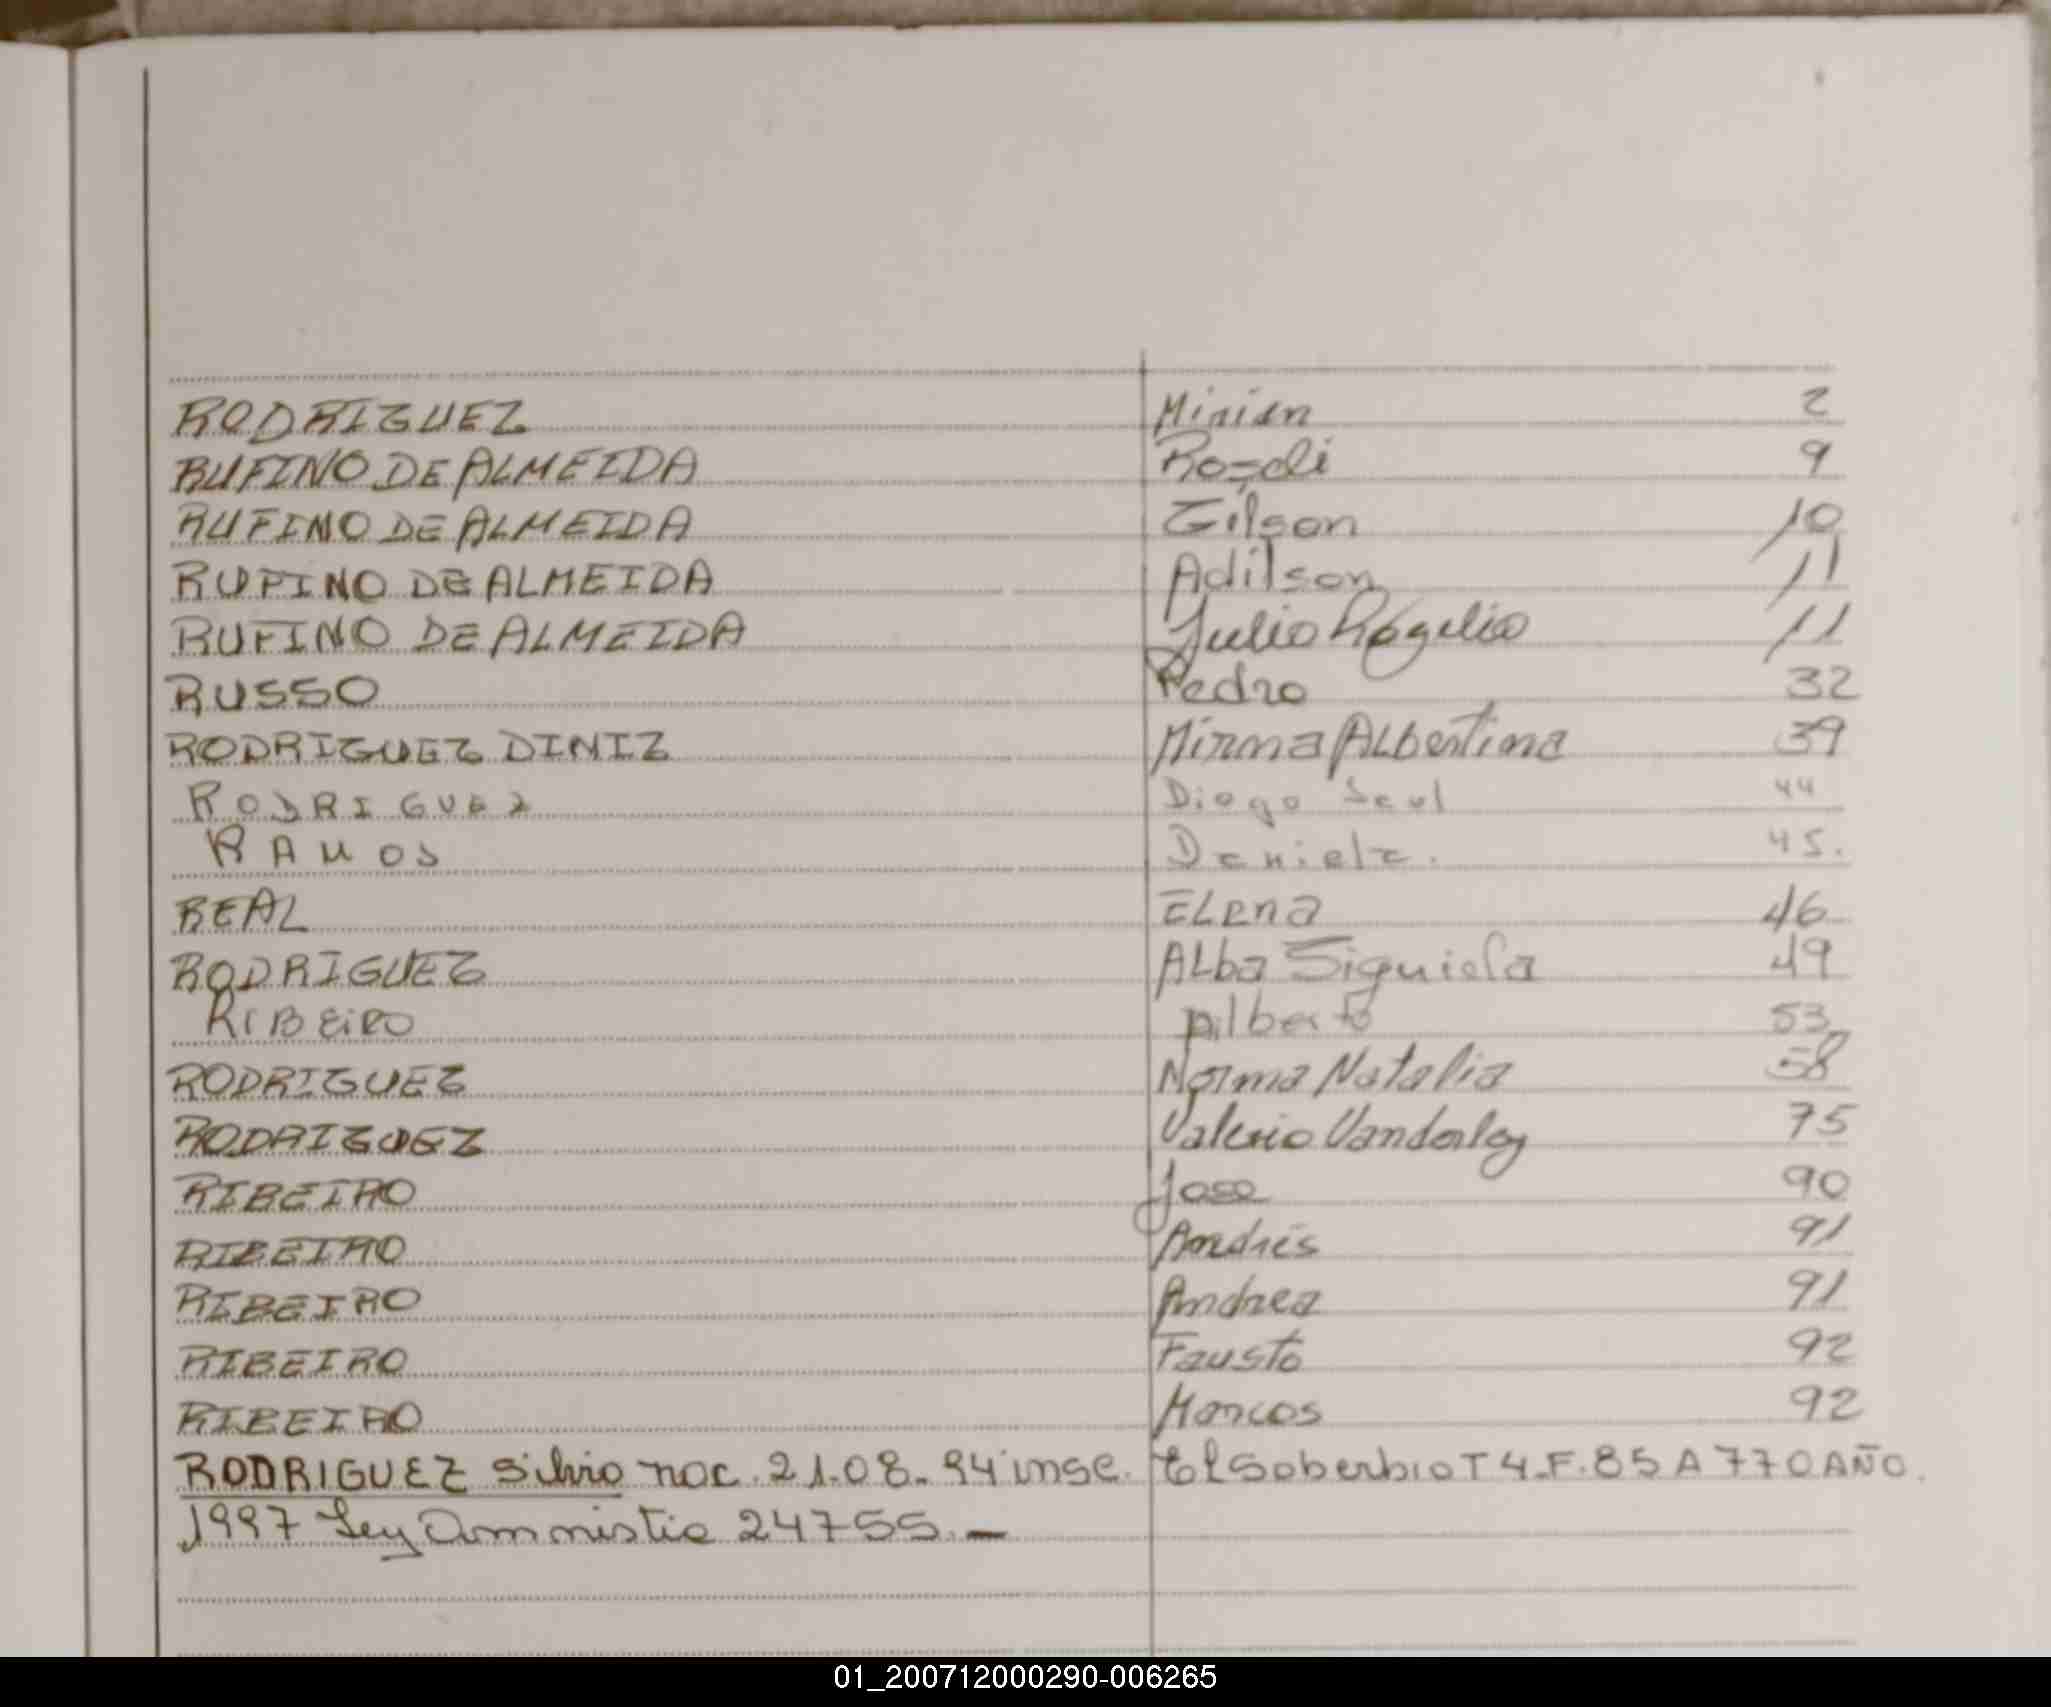 RODRIGUEZ Mirian 2
RUFINO DE ALMEIDA Roseli 9
RUFINO DE ALMEIDA Gilson 10
RUFINO DE ALMEIDA Adilson 11
RUFINO DE ALMEIDA Julio Rogelio 11
RUSSO Pedro 32
RODRIGUEZ DINIZ Mirma Albertina 39
RODRIGUEZ Diogo Saul 44
RAMOS Daniela. 45.
REAL ELena 46
RODRIGUEZ ALba Siguiela 49
RIBEIRO Gilberto 53
RODRIGUEZ Norma Natalia 58
RODRIGUEZ Valerio Vanderley 75
RIBEIRO Jose 90
RIBEIRO Andrés 91
RIBEIRO Andrea 91
RIBEIRO Fausto 92
RIBEIRO Marcos 92
RODRIGUEZ Silvio nac. 21.08.94 insc. El Soberbio T 4.F.85 A 770 AÑO.
1997 Ley Amnistia 24755.-
01_200712000290-006265